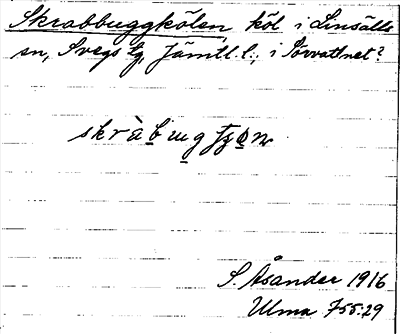 Skrabbuggkölen köl i Linsälls
sn, Svegs tg, Jämtl. l., i Törvattnet?
S. Åsander 1916
Ulma 755:29